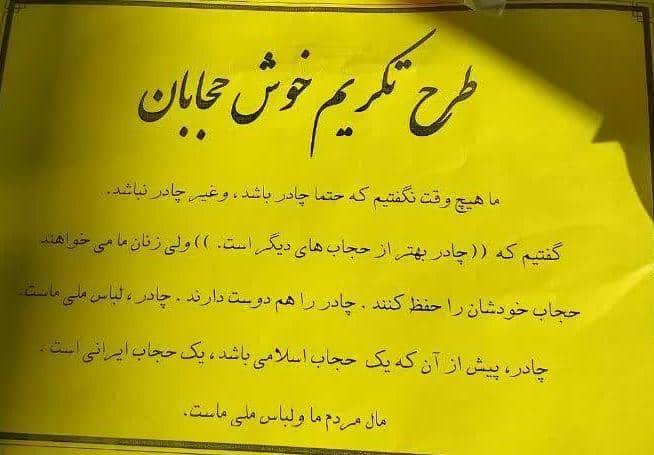 طرح تکریم خوش حجابان
ما هیچ وقت نگفتیم که حتما چادر باشد، وغیر چادر نباشد.
گفتیم که ((چادر بهتر از حجاب های دیگر است. )) ولی زنان ما می خواهند
حجاب خودشان را حفظ کنند . چادر را هم دوست دارند . چادر ، لباس ملی ماست.
چادر، پیش از آن که یک حجاب اسلامی باشد، یک حجاب ایرانی است .
مال مردم ما و لباس ملی ماست.